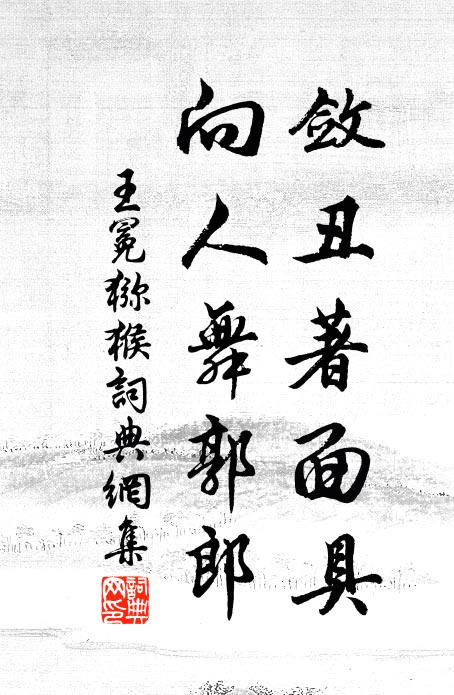 斂丑著面具
向人舞郭郎
王冕獼猴詞典網集
詞典网印